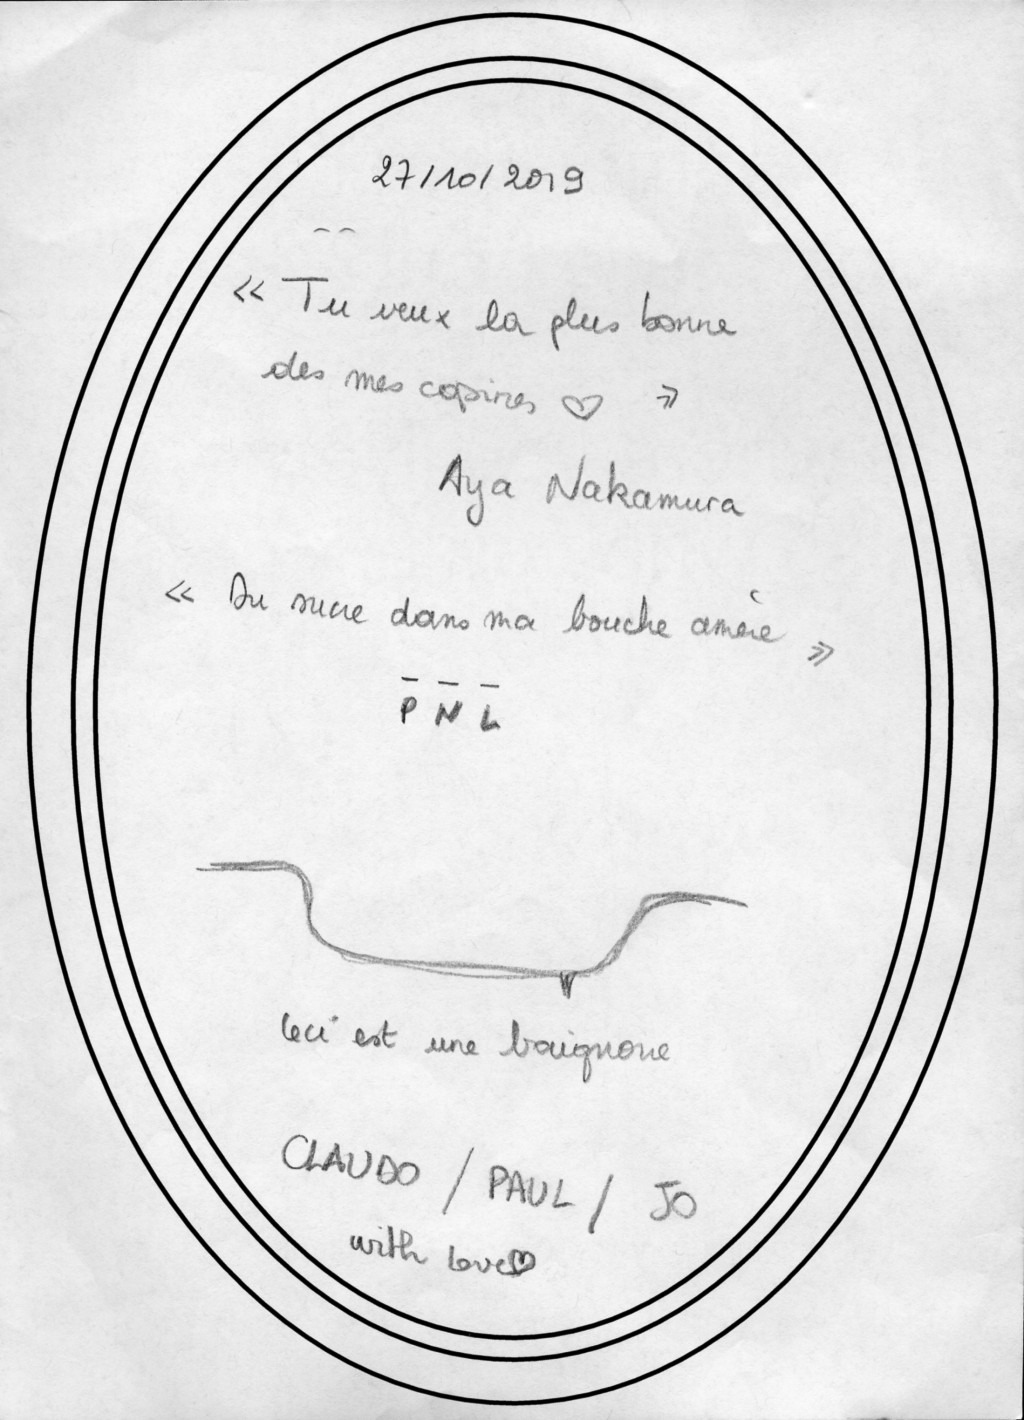 27/10/2019
« Tu veux la plus bonne
des mes copines ♡ »
Aya Nakamura
« Du sucre dans ma bouche amère »
P N L
Ceci est une baignoire
CLAUDO / PAUL / JO
with love♡